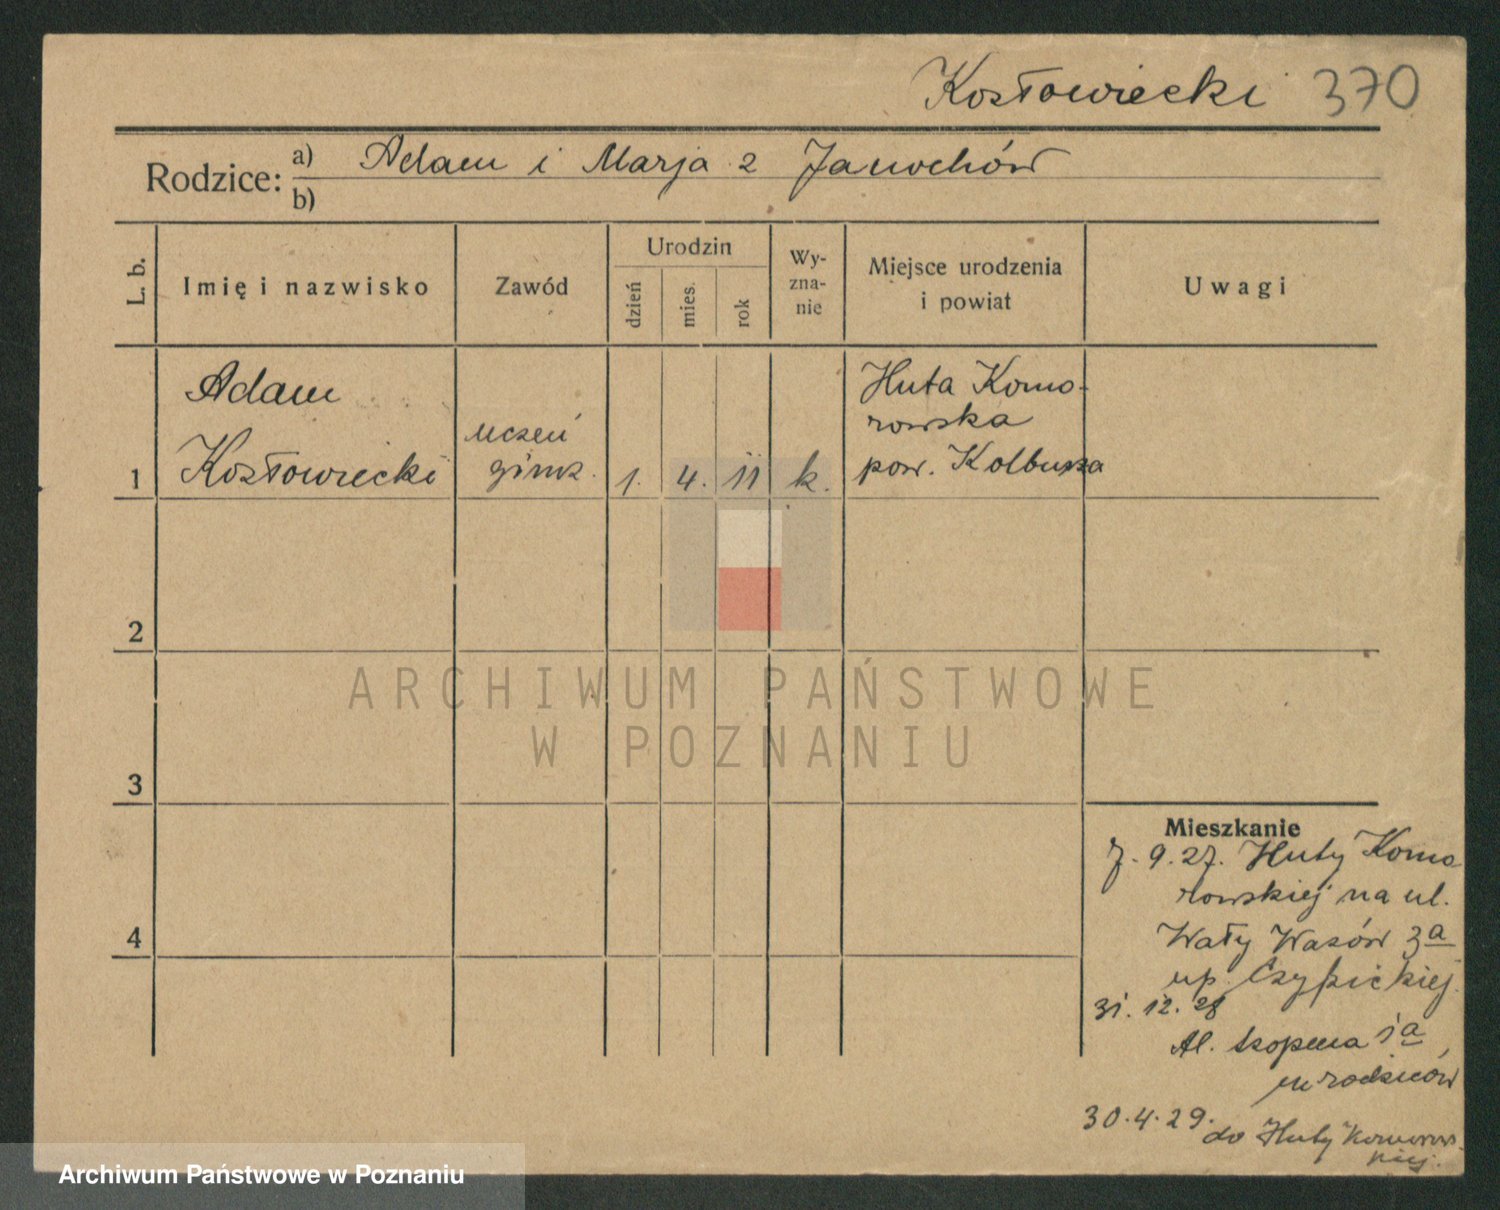 Kozłowiecki 370
Rodzice: a) Adam i Marja z Janochów
b)
L. b.
Imię i nazwisko
Zawód
Urodzin
dzień
mies.
rok
Wy-
zna-
nie
Miejsce urodzenia
i powiat
Uwagi
1
Adam
Kozłowiecki
uczeń
gimz.
1. 4. 11
k.
Huta Komo-
rowska
pow. Kolbusza
2
3
4
Mieszkanie
7. 9. 27. Huty Komo
rowskiej na ul.
Wały Wazów 3a
up. Czypickiej.
31. 12. 28
Al. Szopena 1a
u rodziców
30. 4. 29. do Huty Komorows-
kiej.
ARCHIWUM PAŃSTWOWE
W POZNANIU
Archiwum Państwowe w Poznaniu